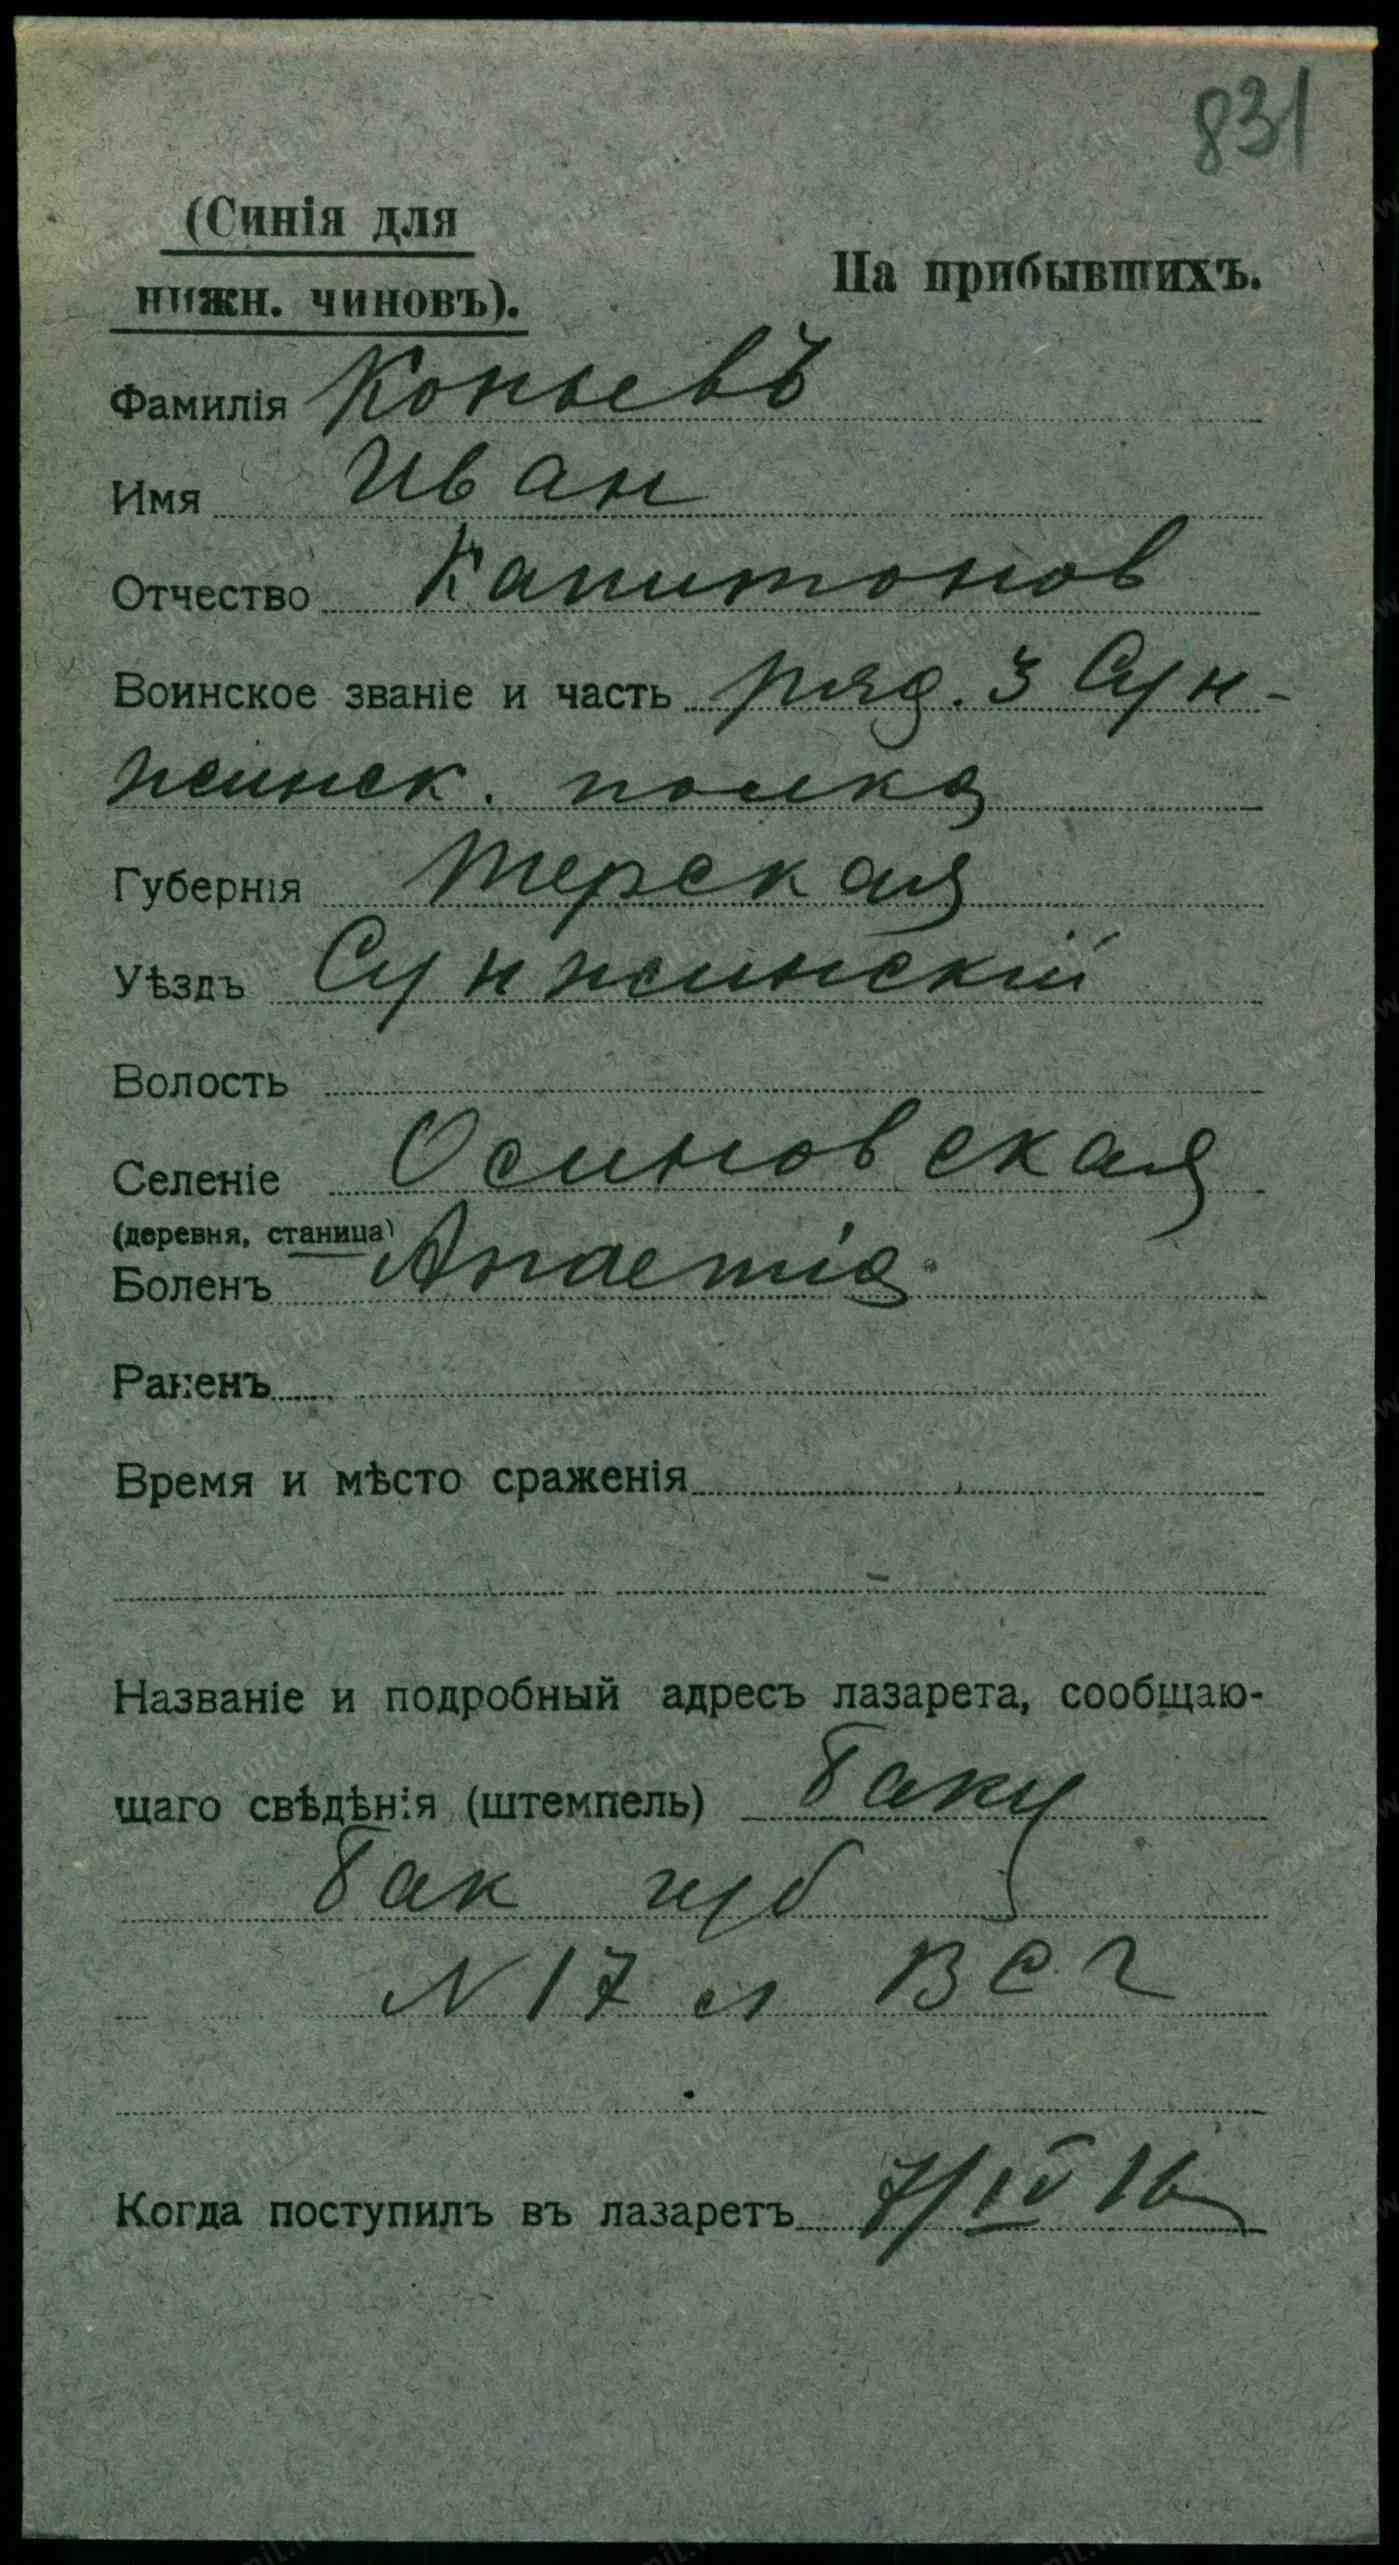 831
(Синія для
нижн. чиновъ).
На прибывшихъ.
Фамилія Коньевъ
Имя Иван
Отчество Капитонов
Воинское званіе и часть ряд. 3 Сун-
женск. полка
Губернія Терская
Уѣздъ Сунженскій
Волость
Селеніе Осиновская
(деревня, станица)
Боленъ Anaemia.
Раненъ
Время и мѣсто сраженія
Названіе и подробный адресъ лазарета, сообщаю-
щаго свѣдѣнія (штемпель) Баку
Бак губ
N 17 л ВСГ
Когда поступилъ въ лазаретъ 7/IV 16